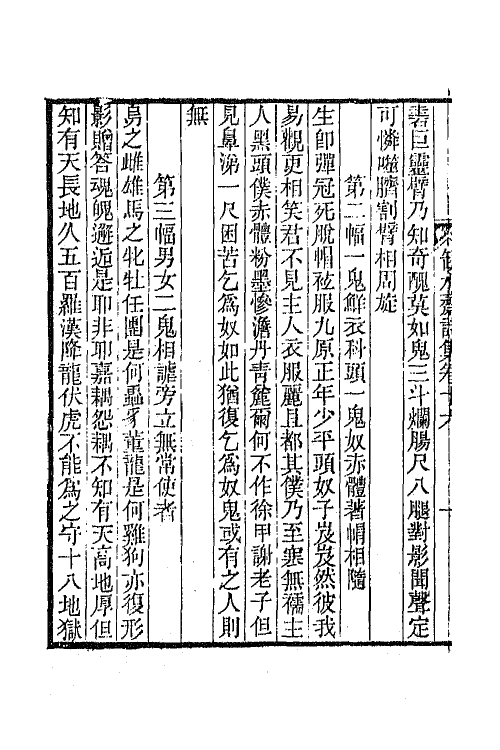 砉巨靈臂乃知奇醜莫如鬼三斗爛腸尺八腿對影聞聲定
可憐噬臍割臂相周旋
第二幅一鬼鮮衣科頭一鬼奴赤體著帽相隨
生卽彈冠死脫帽袨服九原正年少平頭奴子岌岌然彼我
易觀更相笑君不見主人衣服麗且都其僕乃至寒無襦主
人黑頭僕赤體粉墨慘澹丹靑麄爾何不作徐甲謝老子但
見鼻涕一尺困苦乞爲奴如此猶復乞爲奴鬼或有之人則
無
第三幅男女二鬼相謔旁立無常使者
鳥之雌雄馬之牝牡任團是何蝨豸董龍是何雞狗亦復形
影贈答魂魄邂逅是耶非耶嘉耦怨耦不知有天高地厚但
知有天長地久五百羅漢降龍伏虎不能爲之守十八地獄